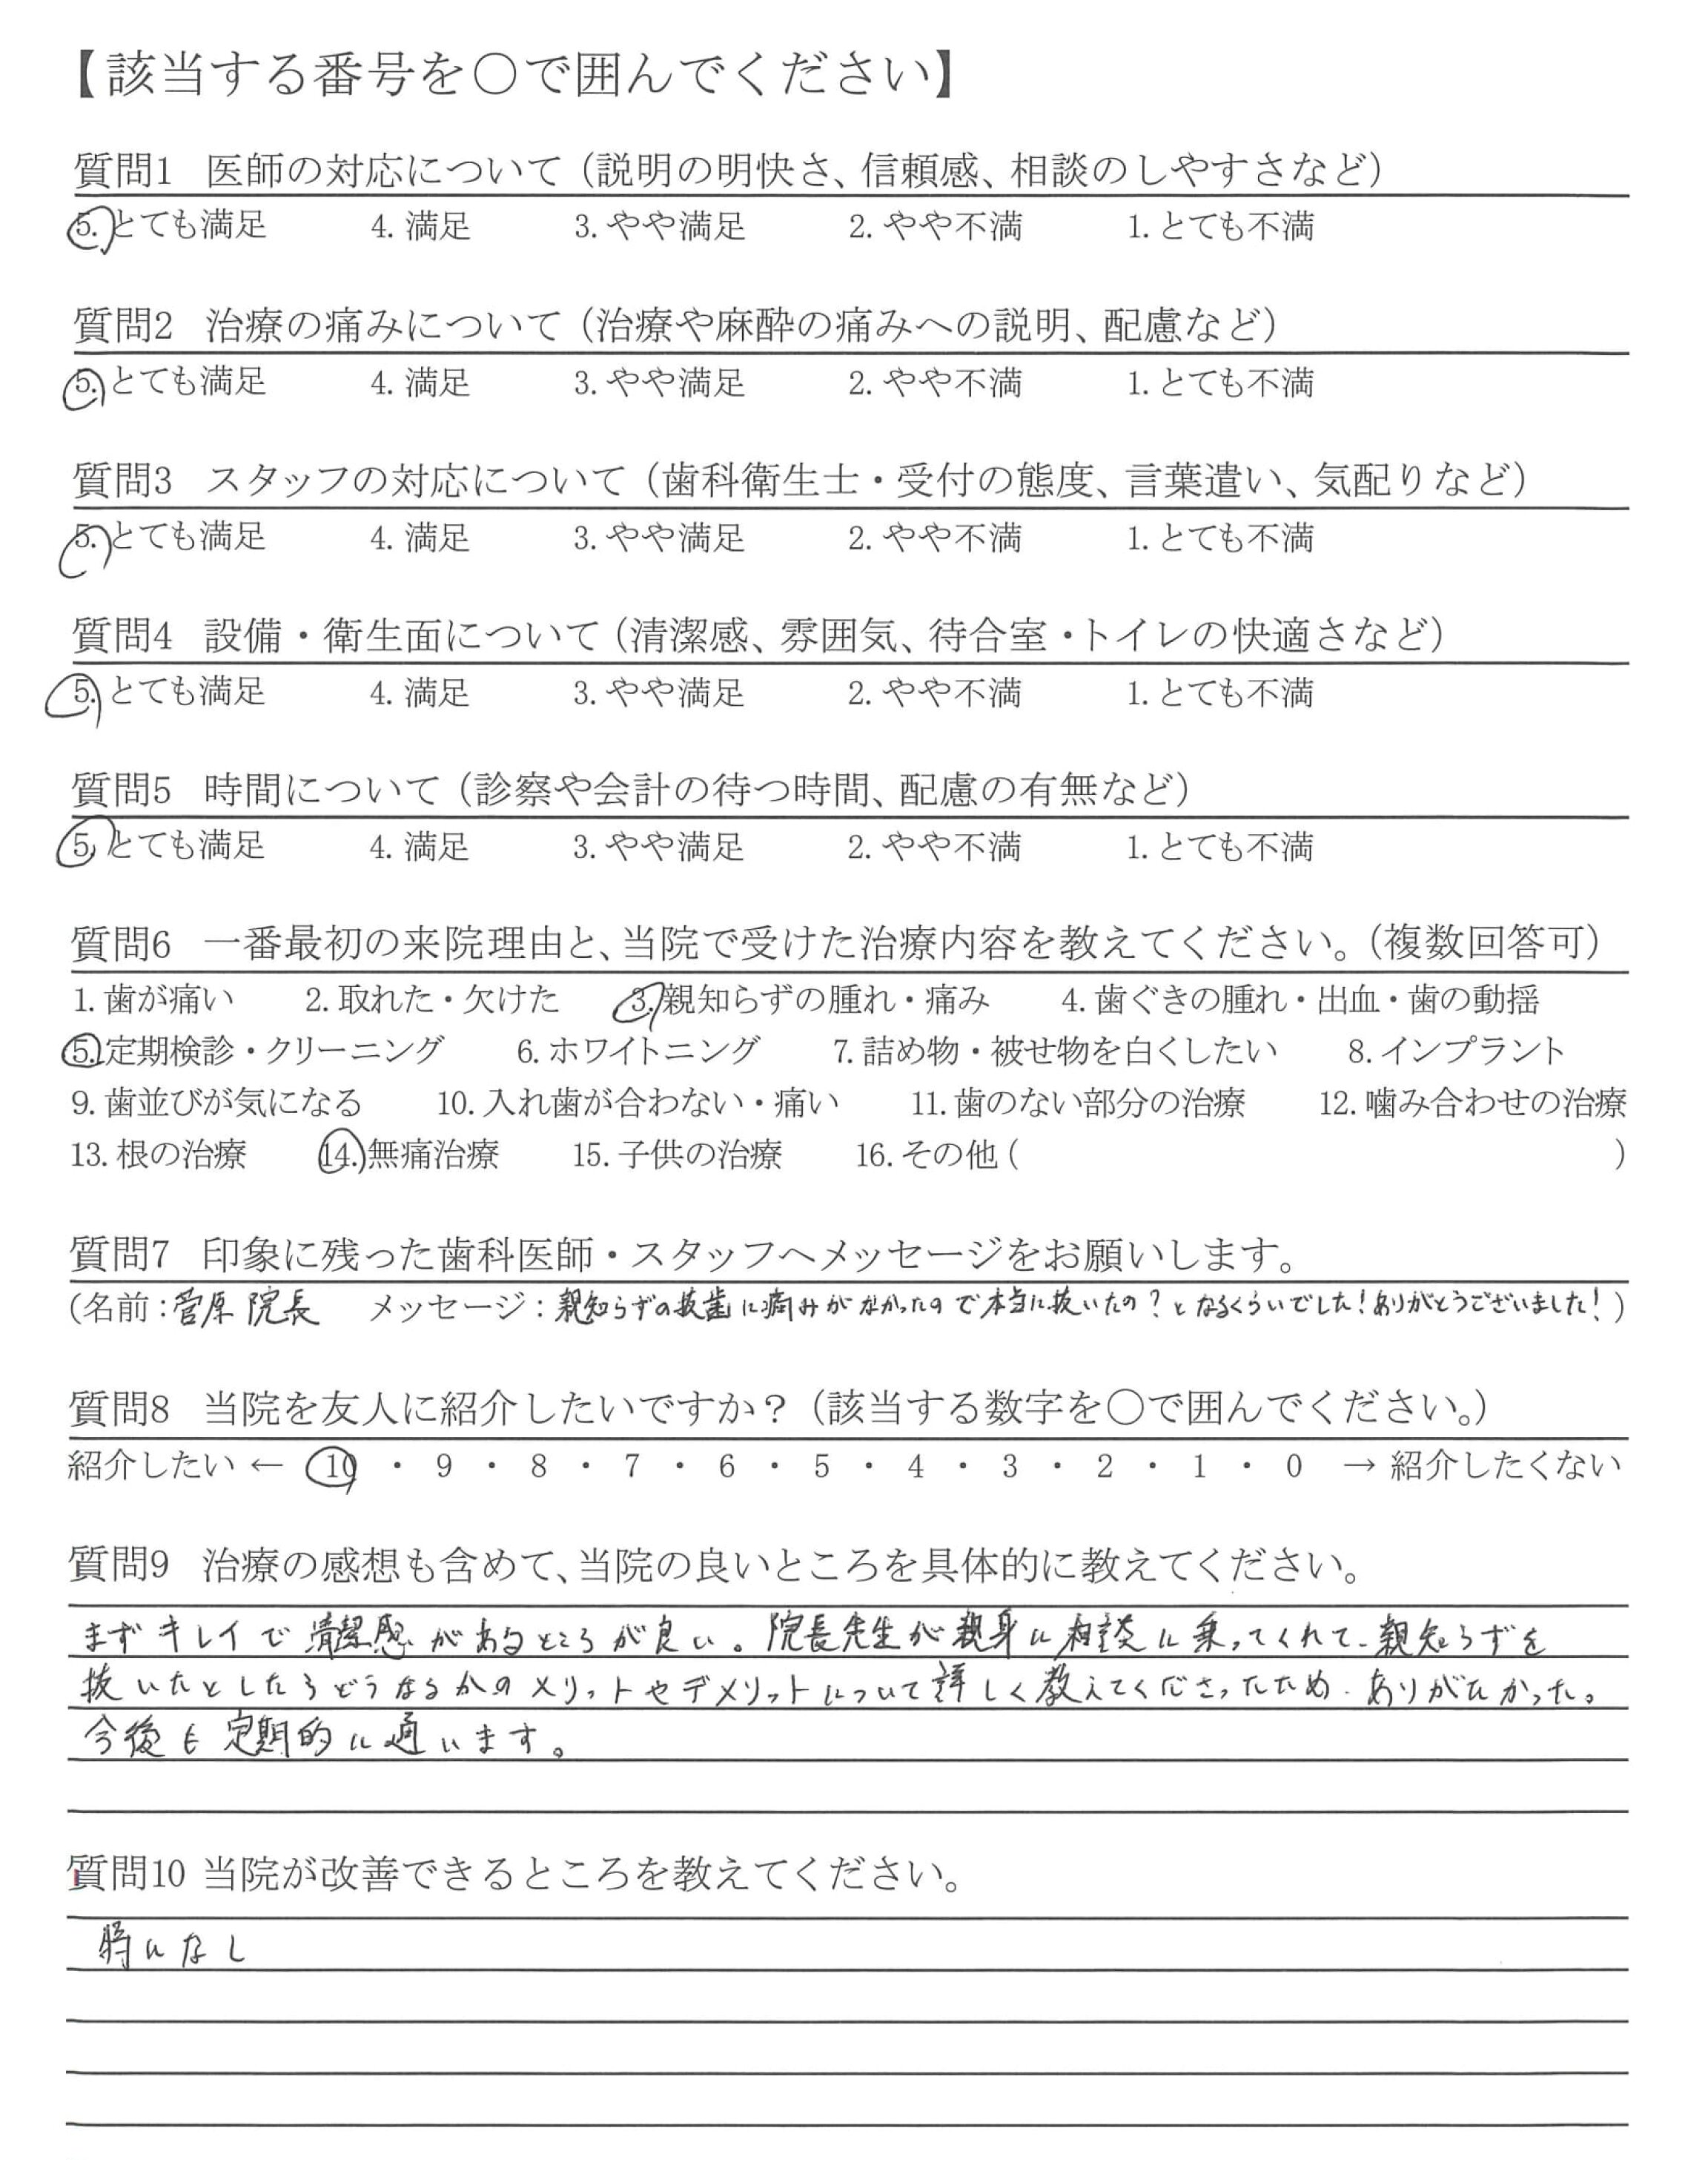 【該当する番号を○で囲んでください】
質問1 医師の対応について（説明の明快さ、信頼感、相談のしやすさなど）
5. とても満足 4. 満足 3. やや満足 2. やや不満 1. とても不満
質問2 治療の痛みについて（治療や麻酔の痛みへの説明、配慮など）
5. とても満足 4. 満足 3. やや満足 2. やや不満 1. とても不満
質問3 スタッフの対応について（歯科衛生士・受付の態度、言葉遣い、気配りなど）
5. とても満足 4. 満足 3. やや満足 2. やや不満 1. とても不満
質問4 設備・衛生面について（清潔感、雰囲気、待合室・トイレの快適さなど）
5. とても満足 4. 満足 3. やや満足 2. やや不満 1. とても不満
質問5 時間について（診察や会計の待つ時間、配慮の有無など）
5. とても満足 4. 満足 3. やや満足 2. やや不満 1. とても不満
質問6 一番最初の来院理由と、当院で受けた治療内容を教えてください。（複数回答可）
1. 歯が痛い 2. 取れた・欠けた 3. 親知らずの腫れ・痛み 4. 歯ぐきの腫れ・出血・歯の動揺
5. 定期検診・クリーニング 6. ホワイトニング 7. 詰め物・被せ物を白くしたい 8. インプラント
9. 歯並びが気になる 10. 入れ歯が合わない・痛い 11. 歯のない部分の治療 12. 噛み合わせの治療
13. 根の治療 14. 無痛治療 15. 子供の治療 16. その他（ ）
質問7 印象に残った歯科医師・スタッフへメッセージをお願いします。
（名前：菅原 院長 メッセージ：親知らずの抜歯に痛みがなかったので本当に抜いたの？となるくらいでした！ありがとうございました！）
質問8 当院を友人に紹介したいですか？（該当する数字を○で囲んでください。）
紹介したい ← 10 ・ 9 ・ 8 ・ 7 ・ 6 ・ 5 ・ 4 ・ 3 ・ 2 ・ 1 ・ 0 → 紹介したくない
質問9 治療の感想も含めて、当院の良いところを具体的に教えてください。
まずキレイで清潔感があるところが良い。院長先生が親身に相談に乗ってくれて、親知らずを
抜いたとしたらどうなるかのメリットやデメリットについて詳しく教えてくださったため、ありがたかった。
今後も定期的に通います。
質問10 当院が改善できるところを教えてください。
特になし